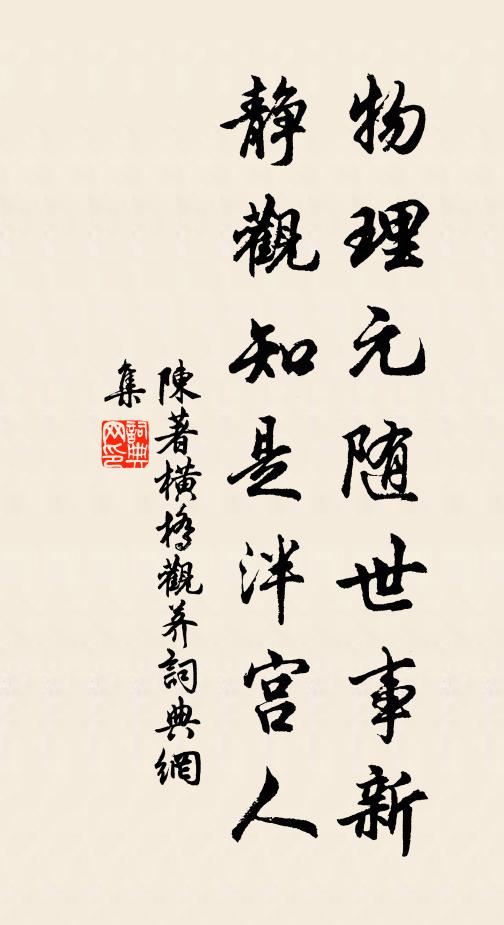 物理元随世事新
静觀知是泮宫人
陳著橫橋觀荞詞典網
集
詞典
网印